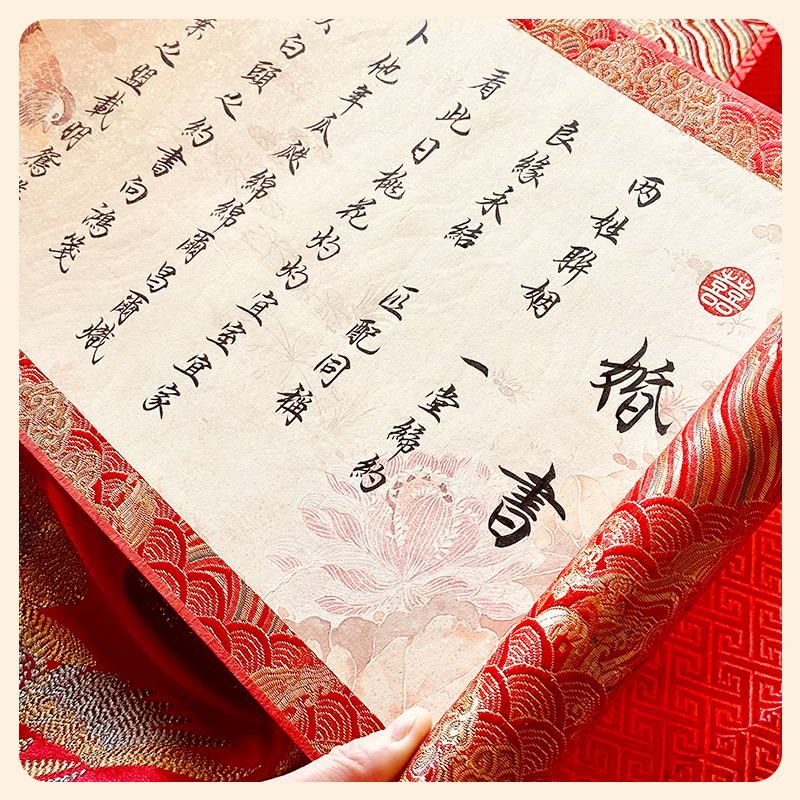 囍
婚書
两姓聯姻 一堂締約
良緣永結 匹配同稱
看此日桃花灼灼宜室宜家
卜他年瓜瓞綿綿爾昌爾熾
白頭之約書向鴻箋
葉之盟載明鴛